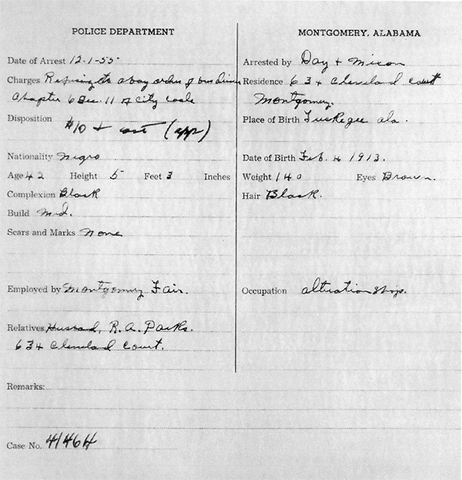 POLICE DEPARTMENT
Date of Arrest 12-1-55-
Charges Refusing to obay orders of bus driver
Chapter 6 Sec. 11 of City Code
Disposition $10 & cost (app)
Nationality Negro
Age 42 Height 5 Feet 3 Inches
Complexion Black
Build Md.
Scars and Marks None
Employed by Montgomery Fair.
Relatives Husband, R.A. Parks.
634 Cleveland Court.
Remarks:
Case No. 41464
MONTGOMERY, ALABAMA
Arrested by Day & Mixon
Residence 634 Cleveland Court
Montgomery.
Place of Birth Tuskegee ala.
Date of Birth Feb 4 1913.
Weight 140 Eyes Brown.
Hair Black.
Occupation